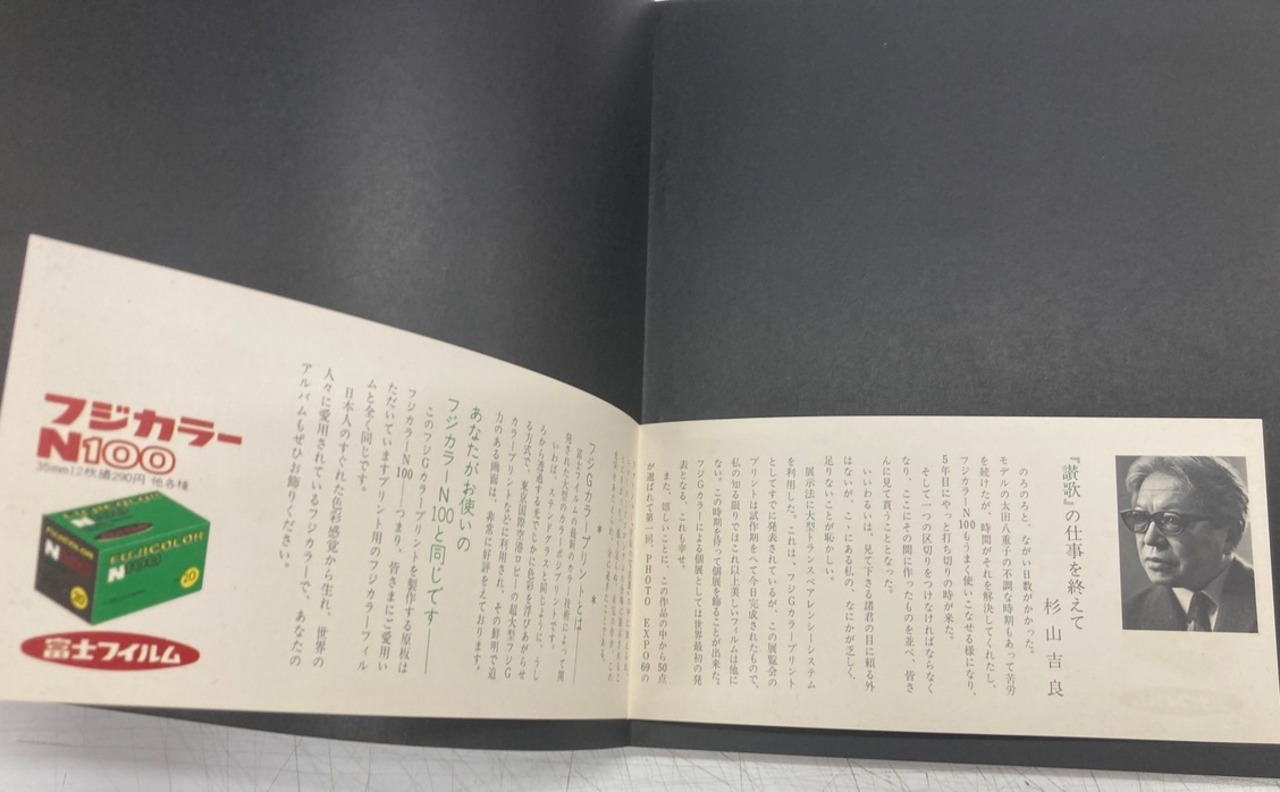 『讃歌』の仕事を終えて
杉山吉良
のろのろと、ながい日数がかかった。
モデルの太田八重子の不調な時期もあって苦労
を続けたが、時間がそれを解決してくれたし、
フジカラーN100もうまく使いこなせる様になり、
5年目にやっと打ち切りの時が来た。
そして一つの区切りをつけなければならなく
なり、ここにその間に作ったものを並べ、皆さ
んに見て貰うこととなった。
いいわるいは、見て下さる諸君の目に頼る外
はないが、こゝにある私の、なにかが乏しく、
足りないことが恥かしい。
展示法に大型トランスペアレンシーシステム
を利用した。これは、フジGカラープリント
としてすでに発表されているが、この展覧会の
プリントは試作期をへて今日完成されたもので、
私の知る限りではこれ以上美しいフィルムは他に
ない。この時期を待って個展を飾ることが出来た。
フジGカラーによる個展としては世界最初の発
表となる。これも幸せ。
また、嬉しいことに、この作品の中から50点
が選ばれて第一回、PHOTO EXPO69の
＊　　＊
フジGカラープリントとは
富士フイルムの最新のカラー技術によって開
発された大型のカラーポジプリントです。
いわば、ステンドグラスと同じように、うし
ろから透過する光でじかに色彩を浮びあがらせ
る方式で、東京国際空港ロビーの超大型フジG
カラープリントなどに利用され、その鮮明で迫
力のある画面は、非常に好評をえております。
あなたがお使いの
フジカラーN100と同じです——
このフジGカラープリントを製作する原板は
フジカラーN100——つまり、皆さまにご愛用い
ただいていますプリント用のフジカラーフィル
ムと全く同じです。
日本人のすぐれた色彩感覚から生れ、世界の
人々に愛用されているフジカラーで、あなたの
アルバムもぜひお飾りください。
フジカラー
N100
35mm12枚撮290円 他各種
FUJICOLOR
N100
FUJICOLOR
N100
20
FUJICOLOR
N100
20
富士フイルム